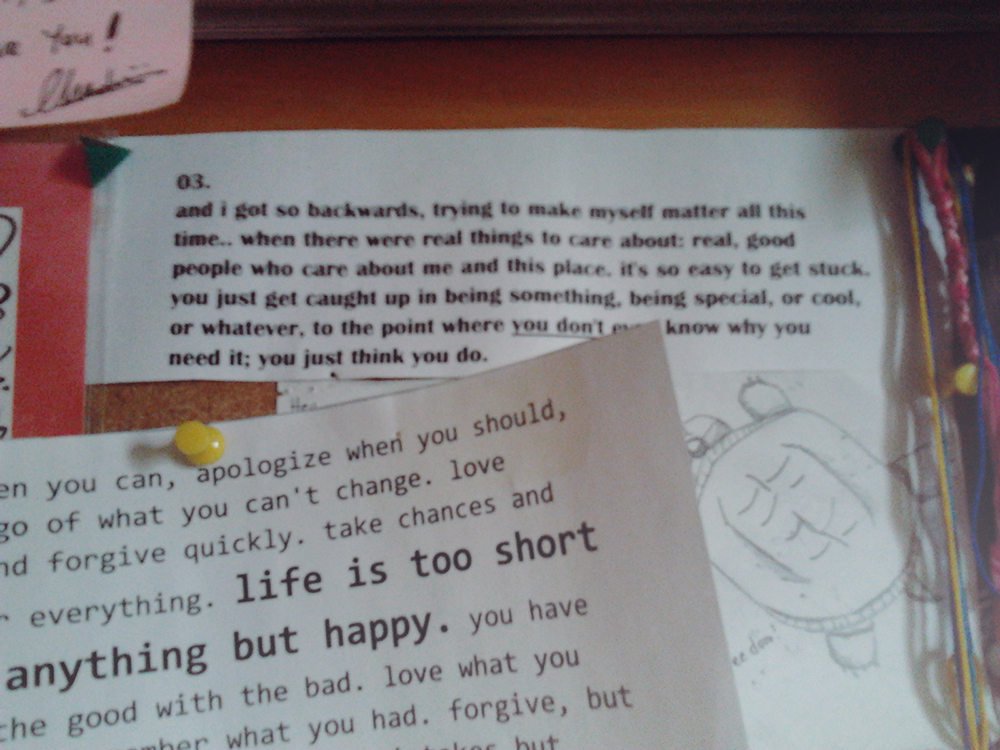 you!
03.
and i got so backwards, trying to make myself matter all this
time.. when there were real things to care about: real, good
people who care about me and this place. it's so easy to get stuck.
you just get caught up in being something, being special, or cool,
or whatever, to the point where you don't know why you
need it; you just think you do.
en you can, apologize when you should,
go of what you can't change. love
nd forgive quickly. take chances and
r everything. life is too short
anything but happy. you have
the good with the bad. love what you
mber what you had. forgive, but
but